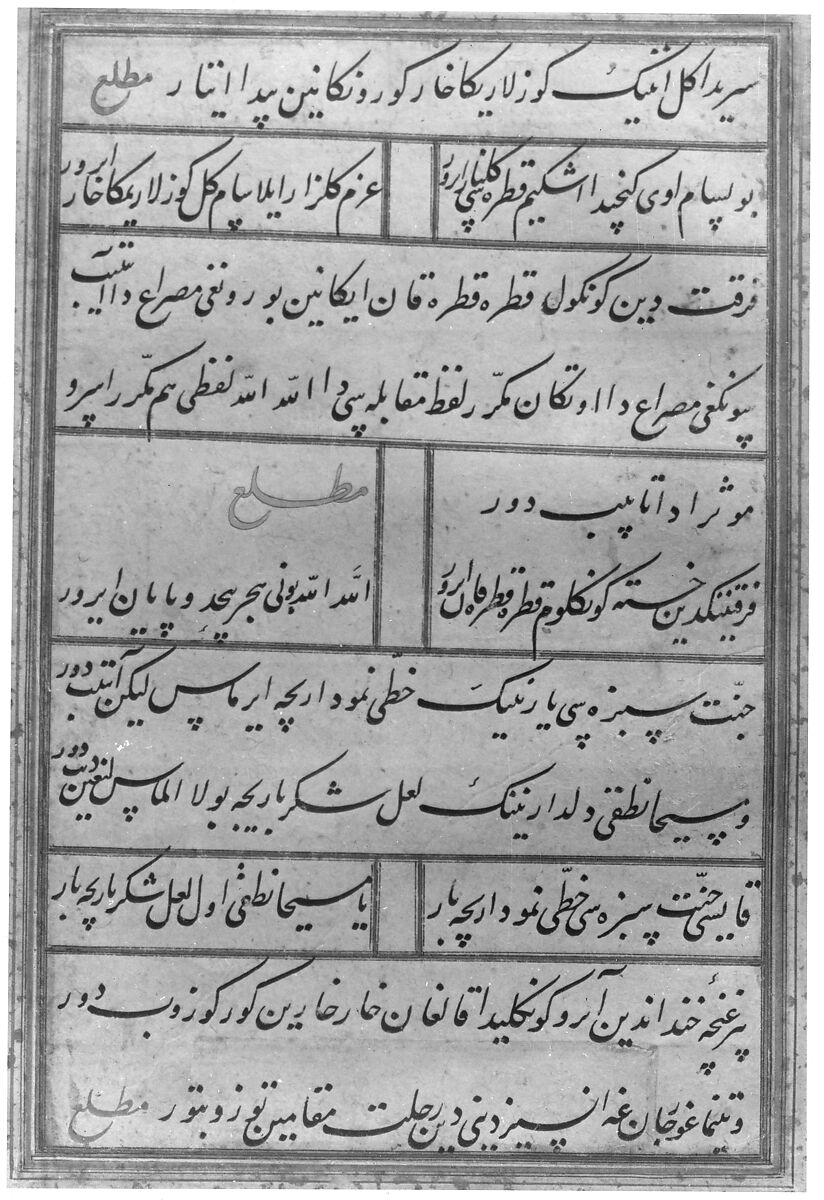 سیریدا کل انینک کوزلاریکا خار کورونکانین پیدا ایتار مطلع
بولسام اوی کنجیدا اشکیم قطره سی کلنار ایرور
عزم کلزار ایلاسام کل کوزلاریمکا خار ایرور
فرقت دین کونکول قطره قطره قان ایکانین بورونغی مصراع دا ایتیب
سونکغی مصراع دا اوتکان مکرّر لفظ مقابله سی دا الله الله لفظی هم مکرر اسرو
موثر ادا تاپیب دور
مطلع
فرقتینکدین خسته کونکلوم قطره قطره قان ایرور
الله الله بونی هجر بیحد و پایان ایرور
جنّت سبزه سی یارنینک خطّی نموداریچه ایرماس لیکن آیتیب دور
و مسیحا نطقی دلدارنینک لعل شکرباریچه بولا الماس لیغین دیب دور
قایسی جنّت سبزه سی خطّی نموداریچه بار
یا مسیحا نطقی اول لعل شکرباریچه بار
بیر غنچه خنداندین آیرو کونکلیدا قالغان خار خارین کورکوزوب دور
مقامین توزوبتور مطلع